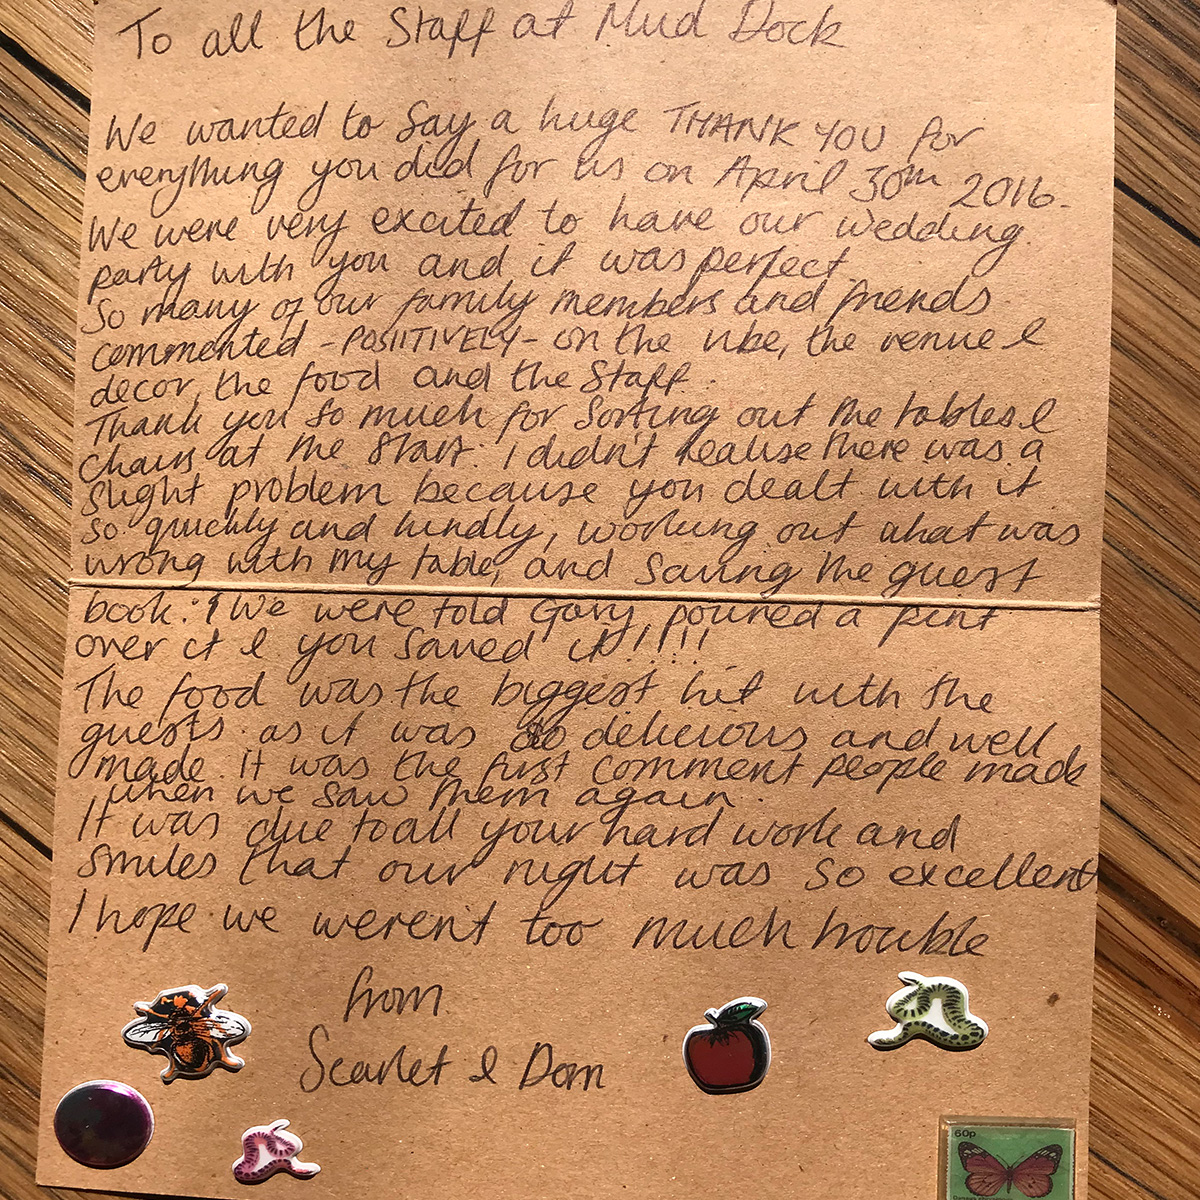 To all the Staff at Mud Dock
We wanted to say a huge THANK YOU for
everything you did for us on April 30th 2016.
We were very excited to have our wedding
party with you and it was perfect
So many of our family members and friends
commented -POSITIVELY- on the vibe, the venue &
decor, the food and the staff.
Thank you so much for sorting out the tables &
chairs at the start. I didn't realise there was a
slight problem because you dealt with it
so quickly and kindly, working out what was
wrong with my table, and saving the guest
book! We were told Gary poured a pint
over it & you saved it!!!!
The food was the biggest hit with the
guests as it was so delicious and well
made. It was the first comment people made
when we saw them again.
It was due to all your hard work and
smiles that our night was so excellent
I hope we weren't too much trouble
from
Scarlet & Dom
60p